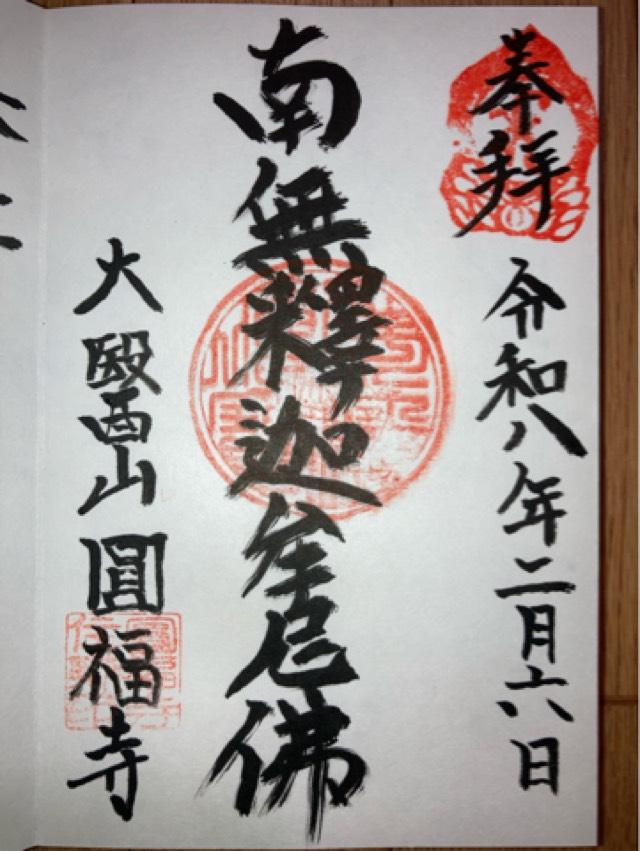 奉拝
令和八年二月六日
南無釋迦牟尼佛
大醫山 圓福寺